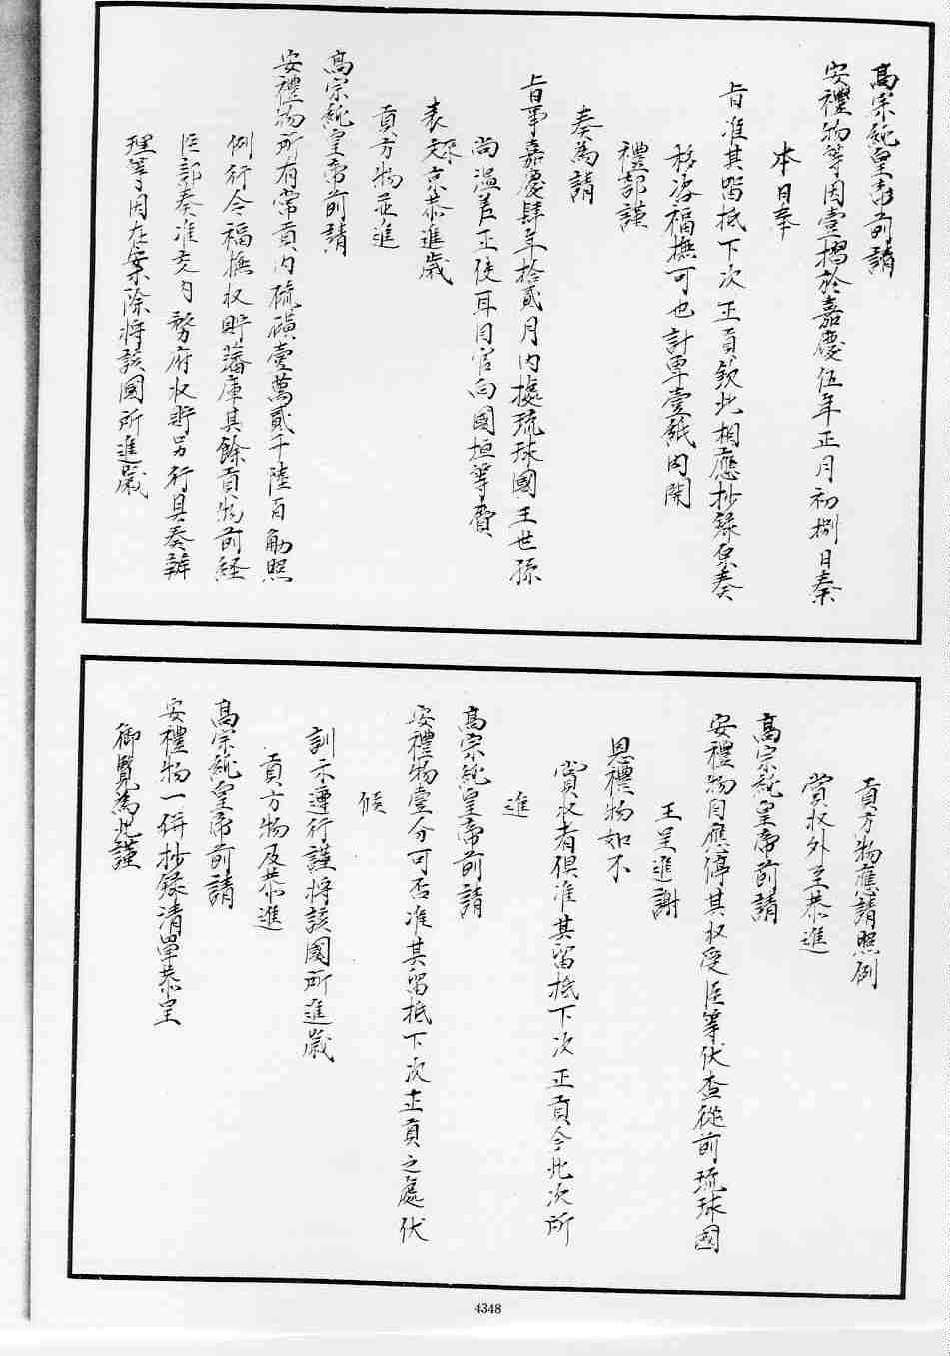 高宗純皇帝前請
安禮物等因壹摺於嘉慶伍年正月初捌日奏
本日奉
旨准其留抵下次正貢欽此相應抄錄原奏
移咨福撫可也計單壹紙內開
禮部謹
奏為請
旨事嘉慶肆年拾貳月內據琉球國王世孫
尚溫差正使耳目官向國垣等賫
表來京恭進歲
貢方物並進
高宗純皇帝前請
安禮物所有常貢內硫磺壹萬貳千陸百觔照
例行令福撫收貯藩庫其餘貢物前経
臣部奏准交內務府收貯另行具奏辦
理等因在案除將該國所進歲
貢方物應請照例
賞收外至恭進
高宗純皇帝前請
安禮物自應停其收受臣等伏查從前琉球國
王呈進謝
恩禮物如不
賞收者俱准其留抵下次正貢今此次所
進
高宗純皇帝前請
安禮物壹分可否准其留抵下次正貢之處伏
候
訓示遵行謹將該國所進歲
貢方物及恭進
高宗純皇帝前請
安禮物一併抄錄清單恭呈
御覽為此謹
4348